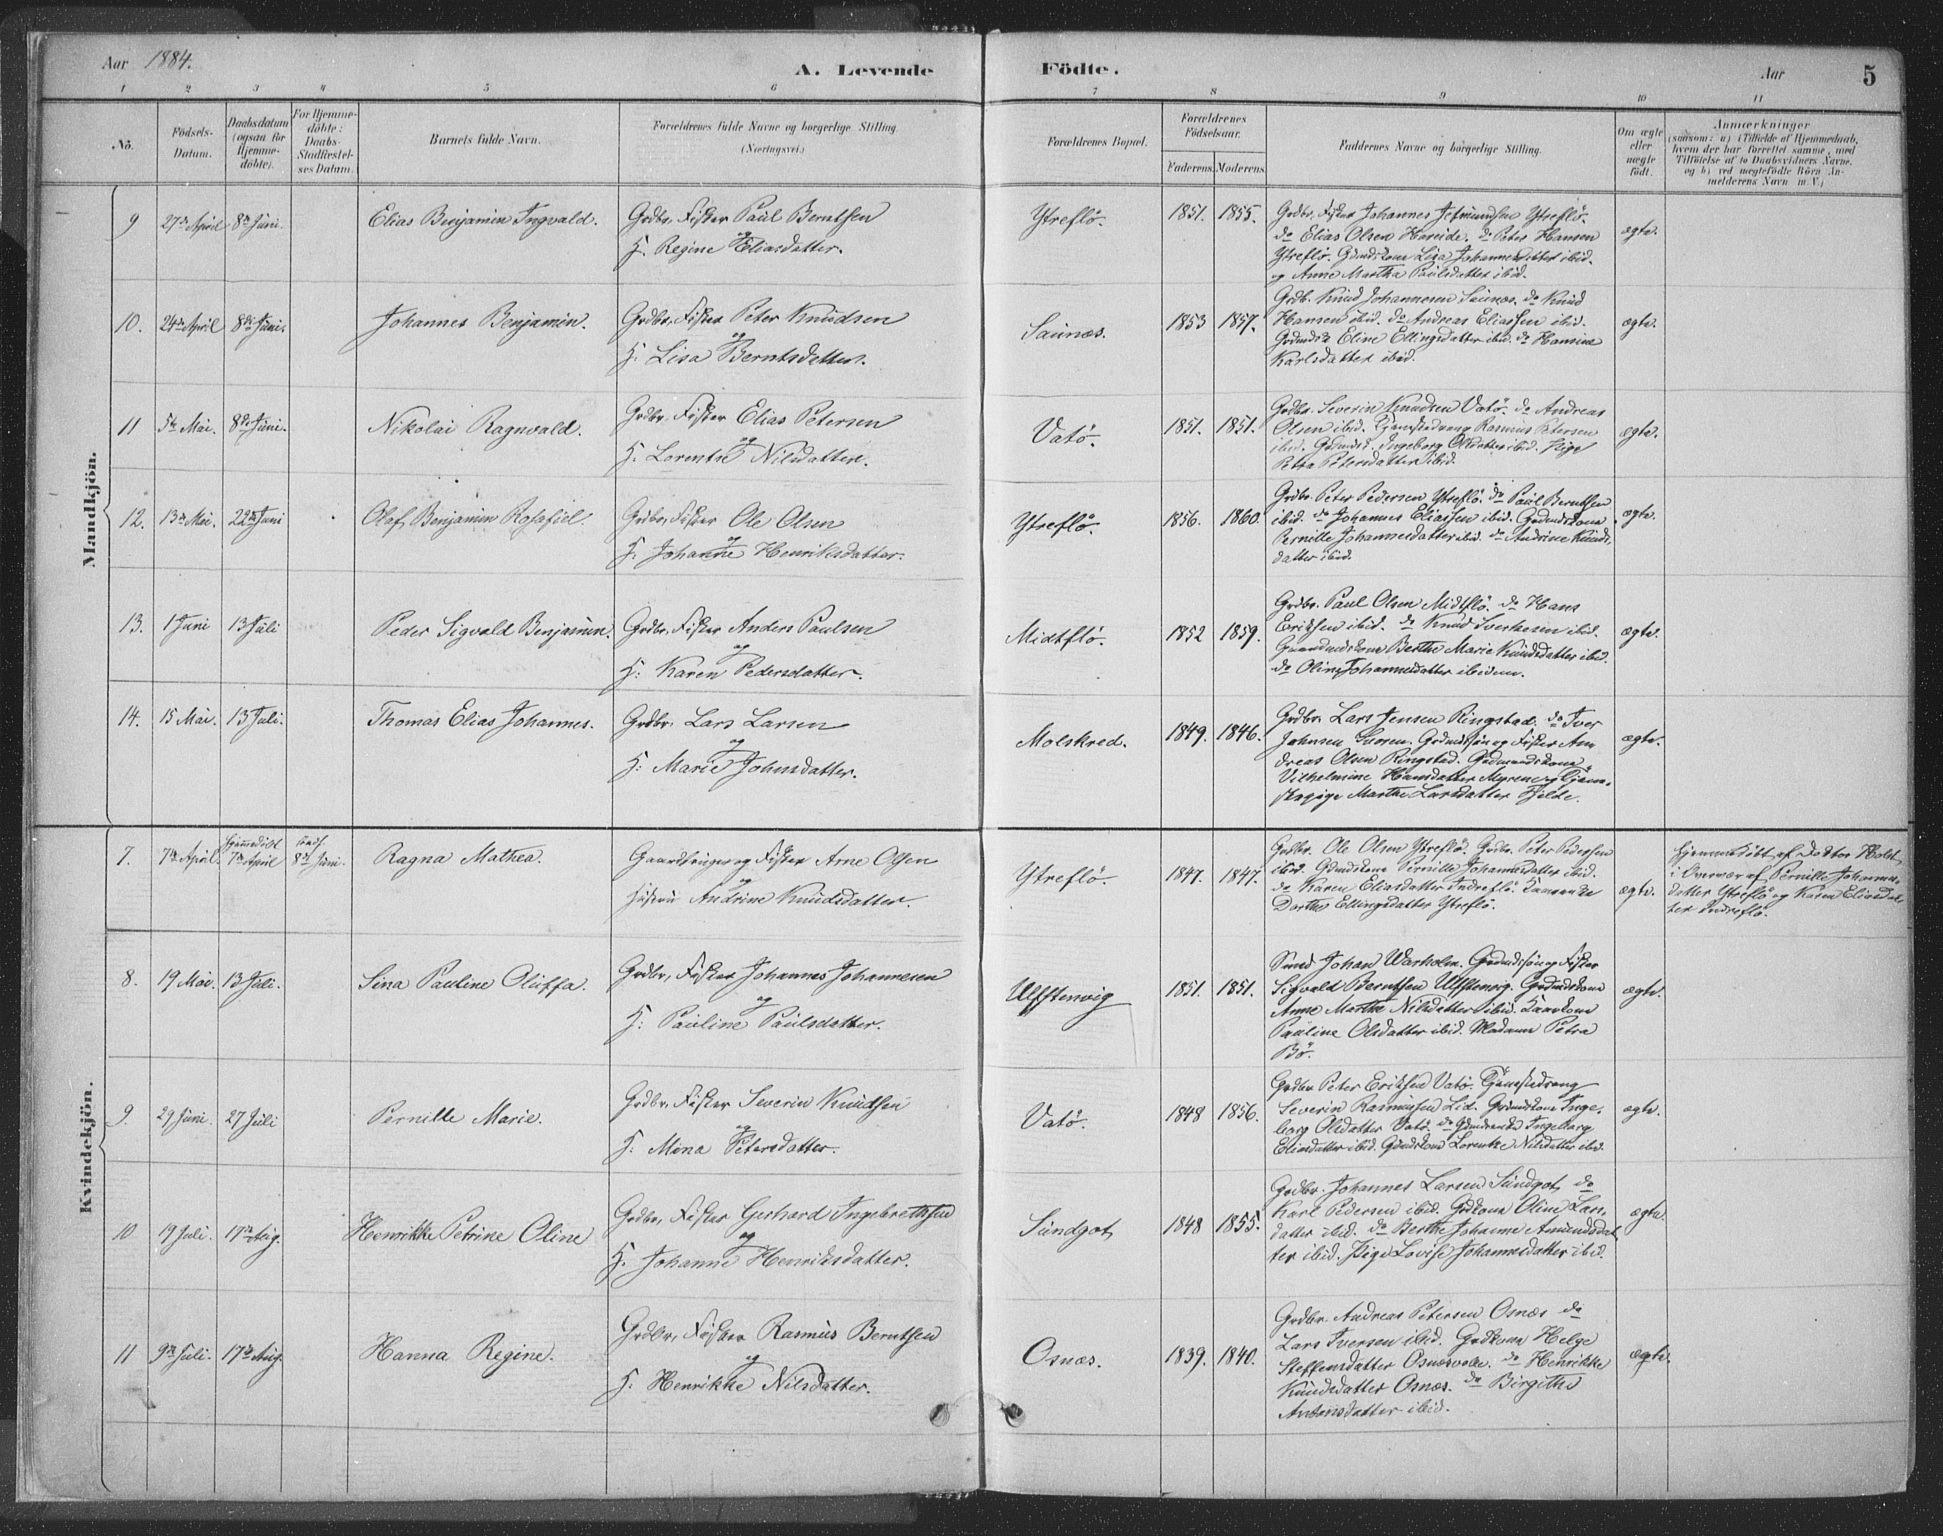 Aar 1884.
A. Levende Födte.
Aar
5
1 2 3 4 5 6 7 8 9 10 11
No.
Födsels-
Datum.
Daabsdatum
(ogsaa for
Hjemme-
döbte).
For Hjemme-
döbte:
Daabs-
Stadfæstel-
ses Datum.
Barnets fulde Navn.
Forældrenes fulde Navne og borgerlige Stilling
(Næringsvei.)
Forældrenes Bopæl.
Forældrenes
Födselsaar.
Faderens. Moderens.
Faddernes Navne og borgerlige Stilling.
Om ægte
eller
uægte
födt.
Anmærkninger
(saasom: a) i Tilfælde af Hjemmedaab,
hvem der har forrettet samme, med
Tilföielse af to Daabsvidners Navne.
og b) ved uægtefödte Börn An-
melderens Navn m. V.)
Mandkjön.
9 27de April 8de Juni. Elias Benjamin Ingvald. Grdbr. Fisker Paul Berntsen
og
H. Regine Eliasdatter.
Ytreflö. 1851. 1855.
Grdbr. Fisker Johannes Jetmundsen Ytreflö.
do Elias Olsen Hareide. do Peter Hansen
Ytreflö. Gdmdskone Lisa Johannesdatter ibid.
og Anne Martha Paulsdatter ibid.
ægte.
10. 24de April 8de Juni. Johannes Benjamin. Grdbr. Fisker Peter Knudsen
og
H: Lisa Berntsdatter.
Saunæs. 1853 1857.
Grdb. Knud Johannesen Saunæs. do Knud
Hansen ibid. do Andreas Eliassen ibid.
Grdmdsk Eline Ellingsdatter ibid. do Hansine
Karlsdatter ibid.
ægte.
11 5te Mai. 8de Juni. Nikolai Ragnvald. Grdbr. Fisker Elias Petersen
og
H. Lorentse Nilsdatter.
Vatö. 1851. 1851.
Grdbr. Severin Knudsen Vatö. do Andreas
Olsen ibid. Tjenestedreng Rasmus Petersen
ibid. Gdmdsk. Ingeborg Olsdatter ibid. Pige
Petra Petersdatter ibid.
ægte.
12. 13de Mai. 22de Juni Olaf Benjamin Rafael. Grdbr. Fisker Ole Olsen
og
H. Johanne Henriksdatter.
Ytreflö. 1856. 1860.
Grdbr. Peter Pedersen Ytreflö. do Paul Berntsen
ibid. do Johannes Eliassen ibid. Grdmdskone
Pernille Johannesdatter ibid. do Andrine Knuds-
datter ibid.
ægte.
13. 1 Juni 13 Juli Peder Sigvald Benjamin. Grdbr. Fisker Anders Paulsen
og
H: Karen Pedersdatter.
Midtflö. 1852 1859.
Grdbr. Paul Olsen Midtflö. do Hans
Eriksen ibid. do Knud Iversen ibid.
Gaardmdskone Berthe Marie Knudsdatter ibid.
do Oline Johannesdatter ibidem.
ægte.
14. 15 Mai. 13 Juli. Thomas Elias Johannes. Grdbr. Lars Larsen
og
H: Marie Johnsdatter.
Molskred. 1849. 1846.
Grdbr. Lars Jensen Ringstad. do Iver
Johnsen. Grdmdssön og Fisker An-
dreas Olsen Ringstad. Grdmandskone
Vilhelmine Hansdatter Myren og Tjene-
stepige Marthe Larsdatter Fjelde.
ægte.
Kvindekjön.
7. 7de April. hjemmedöbt 7de April stadf. 8de Juni. Ragna Mathea. Gaardbruger og Fisker Arne Olsen
og
Hustru Andrine Knudsdatter.
Ytreflö. 1847. 1847.
Grdbr. Ole Olsen Ytreflö. Grdbr. Peter Pedersen
ibid. Gdmdskone Pernille Johannesdatter ibid.
do Karen Eliasdatter Indreflö.
Dorthe Ellingsdatter Ytreflö.
ægte.
Hjemmedöbt af Doktor Holst
i Overvær af Pernille Johannes-
datter Ytreflö og Karen Eliasdat-
ter Indreflö.
8. 19 Mai. 13 Juli. Sina Pauline Oluffa. Grdbr. Fisker Johannes Johannesen
og
H: Pauline Paulsdatter.
Ulfstenvig 1851. 1851.
Smed Johan Warholm. Grdmdssön og Fisker
Sigvald Berntsen Ulfstenvig. Grdmdskone
Anne Marthe Nilsdatter ibid. Kaarkone
Pauline Olsdatter ibid. Madame Petra
Bö.
ægte.
9. 29 Juni. 27 Juli Pernille Marie. Grdbr. Fisker Severin Knudsen
og
H: Mona Petersdatter.
Vatö. 1848 1856.
Grdbr. Peter Eriksen Vatö. Tjenestedreng
Severin Rasmusen Lid. Grdmdskone Inge-
borg Olsdatter Vatö. do Gdmdsenke Ingeborg
Eliasdatter ibid. Gdmdskone Lorentse Nilsdatter ibid.
ægte.
10 19 Juli. 17de Aug. Henrikke Petrine Oline Grdbr. Fisker Gerhard Ingebrethsen
og
H. Johanne Henriksdatter.
Sundgot 1848 1855.
Grdbr. Johannes Larsen Sundgot, do
Karl Pedersen ibid. Grdkone Oline Lars-
datter ibid. do Berthe Johanne Amundsdat-
ter ibid. Pige Lovise Johannesdatter ibid.
ægte.
11 9de Juli. 17de Aug. Hanna Regine. Grdbr. Fisker Rasmus Berntsen
og
H. Henrikke Nilsdatter.
Osnæs. 1839. 1840.
Grdbr. Andreas Petersen Osnæs do
Lars Iversen ibid. Grdkone Helge
Steffensdatter Osnæsvole. do Henrikke
Knudsdatter Osnæs. do Birgithe
Antonsdatter ibid.
ægte.